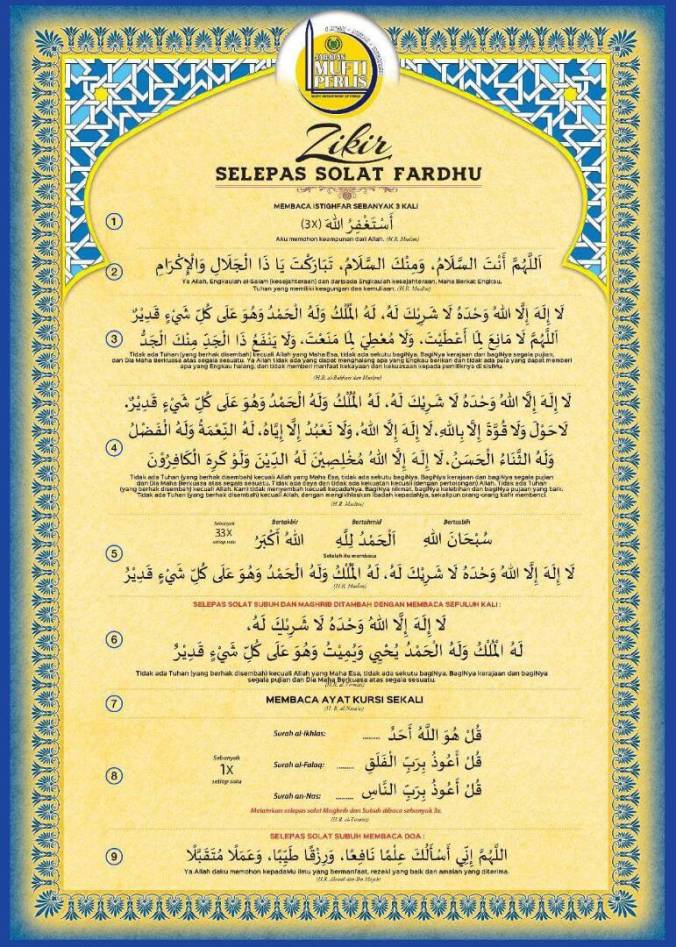 JABATAN
MUFTI
PERLIS
Zikir
SELEPAS SOLAT FARDHU
MEMBACA ISTIGHFAR SEBANYAK 3 KALI
1
أَسْتَغْفِرُ اللهَ (3X)
Aku memohon keampunan dari Allah. (H.R. Muslim)
2
اَللَّهُمَّ أَنْتَ السَّلَامُ، وَمِنْكَ السَّلَامُ، تَبَارَكْتَ يَا ذَا الْجَلَالِ وَالْإِكْرَامِ
Ya Allah, Engkaulah al-Salam (kesejahteraan) dan daripada Engkaulah kesejahteraan, Maha Berkat Engkau,
Tuhan yang memiliki keagungan dan kemuliaan. (H.R. Muslim)
3
لَا إِلَهَ إِلَّا اللهُ وَحْدَهُ لَا شَرِيْكَ لَهُ، لَهُ الْمُلْكُ وَلَهُ الْحَمْدُ وَهُوَ عَلَى كُلِّ شَيْءٍ قَدِيْرٌ
اَللَّهُمَّ لَا مَانِعَ لِمَا أَعْطَيْتَ، وَلَا مُعْطِيَ لِمَا مَنَعْتَ، وَلَا يَنْفَعُ ذَا الْجَدِّ مِنْكَ الْجَدُّ
Tidak ada Tuhan (yang berhak disembah) kecuali Allah yang Maha Esa, tidak ada sekutu bagiNya. BagiNya kerajaan dan bagiNya segala pujian,
dan Dia Maha Berkuasa atas segala sesuatu. Ya Allah tidak ada yang dapat menghalang apa yang Engkau berikan dan tidak ada pula yang dapat memberi
apa yang Engkau halang, dan tidak memberi manfaat kekayaan dan kekuasaan kepada pemiliknya di sisiMu.
(H.R. al-Bukhari dan Muslim)
4
لَا إِلَهَ إِلَّا اللهُ وَحْدَهُ لَا شَرِيْكَ لَهُ، لَهُ الْمُلْكُ وَلَهُ الْحَمْدُ وَهُوَ عَلَى كُلِّ شَيْءٍ قَدِيْرٌ.
لَاحَوْلَ وَلَا قُوَّةَ إِلَّا بِاللهِ، لَا إِلَهَ إِلَّا اللهُ، وَلَا نَعْبُدُ إِلَّا إِيَّاهُ، لَهُ النِّعْمَةُ وَلَهُ الْفَضْلُ
وَلَهُ الثَّنَاءُ الْحَسَنُ، لَا إِلَهَ إِلَّا اللهُ مُخْلِصِيْنَ لَهُ الدِّيْنَ وَلَوْ كَرِهَ الْكَافِرُوْنَ
Tidak ada Tuhan (yang berhak disembah) kecuali Allah yang Maha Esa, tidak ada sekutu bagiNya. BagiNya kerajaan dan bagiNya segala pujian
dan Dia Maha Berkuasa atas segala sesuatu. Tidak ada daya dan tidak ada kekuatan kecuali (dengan pertolongan) Allah. Tidak ada Tuhan
(yang berhak disembah) kecuali Allah. Kami tidak menyembah kecuali kepadaNya. BagiNya nikmat, bagiNya kelebihan dan bagiNya pujian yang baik.
Tidak ada Tuhan (yang berhak disembah) kecuali Allah, dengan mengikhlaskan ibadah kepadaNya, sekalipun orang-orang kafir membenci.
(H.R. Muslim)
5
Sebanyak
33X
setiap satu
Bertakbir Bertahmid Bertasbih
سُبْحَانَ اللهِ اَلْحَمْدُ لِلَّهِ اللهُ أَكْبَرُ
Setelah itu membaca
لَا إِلَهَ إِلَّا اللهُ وَحْدَهُ لَا شَرِيْكَ لَهُ، لَهُ الْمُلْكُ وَلَهُ الْحَمْدُ وَهُوَ عَلَى كُلِّ شَيْءٍ قَدِيْرٌ
(H.R. Muslim)
SELEPAS SOLAT SUBUH DAN MAGHRIB DITAMBAH DENGAN MEMBACA SEPULUH KALI :
6
لَا إِلَهَ إِلَّا اللهُ وَحْدَهُ لَا شَرِيْكَ لَهُ،
لَهُ الْمُلْكُ وَلَهُ الْحَمْدُ يُحْيِي وَيُمِيْتُ وَهُوَ عَلَى كُلِّ شَيْءٍ قَدِيْرٌ
Tidak ada Tuhan (yang berhak disembah) kecuali Allah yang Maha Esa, tidak ada sekutu bagiNya. BagiNya kerajaan dan bagiNya
segala pujian dan Dia Maha Berkuasa atas segala sesuatu.
7
MEMBACA AYAT KURSI SEKALI
(H.R. al-Nasaie)
8
Sebanyak
1X
setiap satu
Surah al-Ikhlas: ........ قُلْ هُوَ اللَّهُ أَحَدٌ
Surah al-Falaq: ........ قُلْ أَعُوذُ بِرَبِّ الْفَلَقِ
Surah an-Nas: ........ قُلْ أَعُوذُ بِرَبِّ النَّاسِ
Melainkan selepas solat Maghrib dan Subuh dibaca sebanyak 3x.
SELEPAS SOLAT SUBUH MEMBACA DOA :
9
اللَّهُمَّ إِنِّي أَسْأَلُكَ عِلْمًا نَافِعًا، وَرِزْقًا طَيِّبًا، وَعَمَلًا مُتَقَبَّلًا
Ya Allah daku memohon kepadaMu ilmu yang bermanfaat, rezeki yang baik dan amalan yang diterima.
(H.R. Ahmad dan Ibn Majah)